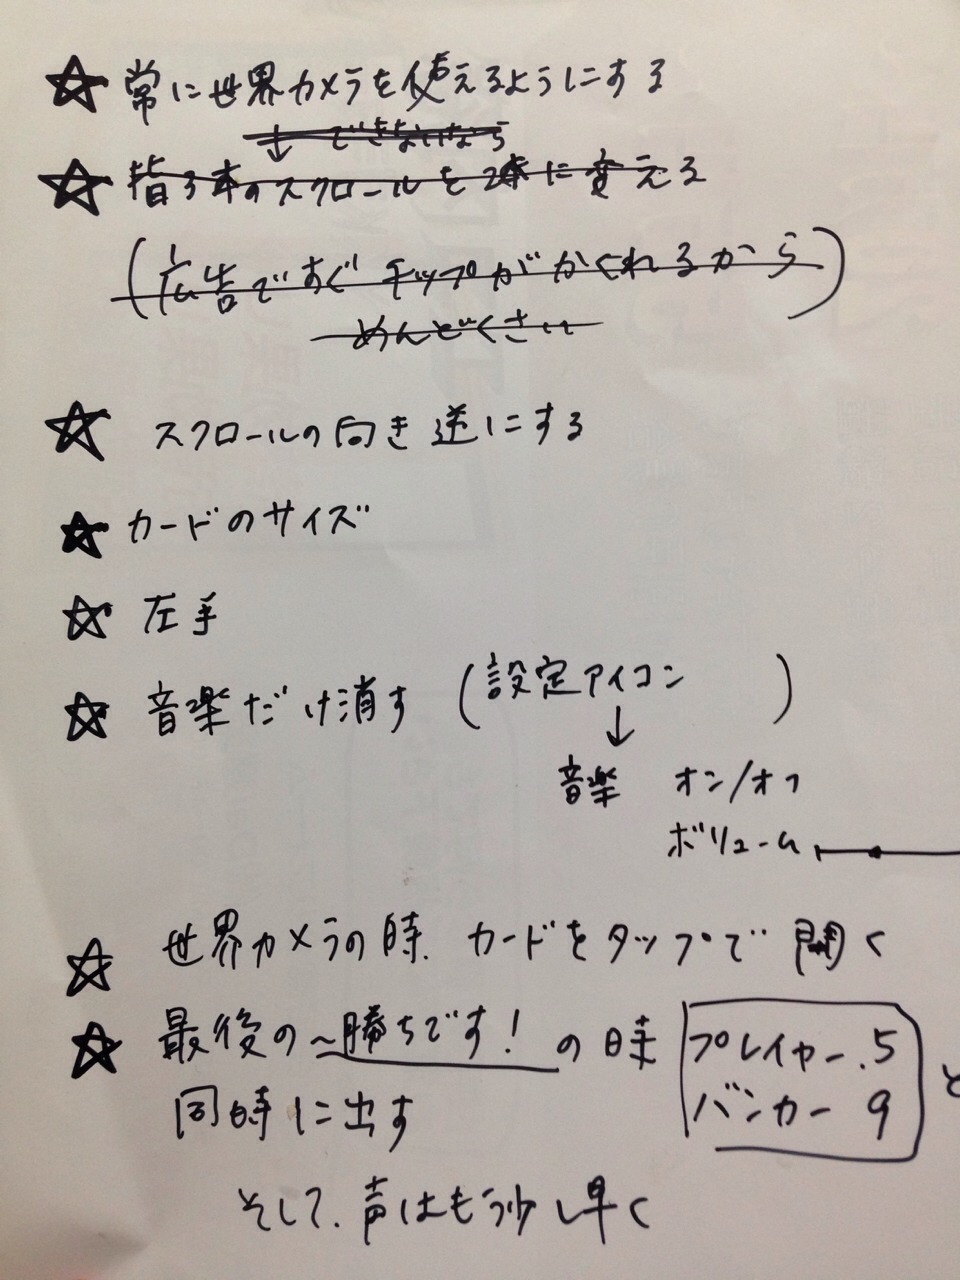 ☆ 常に世界カメラを使えるようにする
↓ できないなら
☆ 指3本のスクロールを2本に変える
(広告ですぐチップがかくれるから)
めんどくさい
☆ スクロールの向き逆にする
☆ カードのサイズ
☆ 左手
☆ 音楽だけ消す (設定アイコン )
↓
音楽 オン/オフ
ボリューム
☆ 世界カメラの時、カードをタップで開く
☆ 最後の~勝ちです! の時 プレイヤー.5
バンカー 9 と
同時に出す
そして、声はもう少し早く